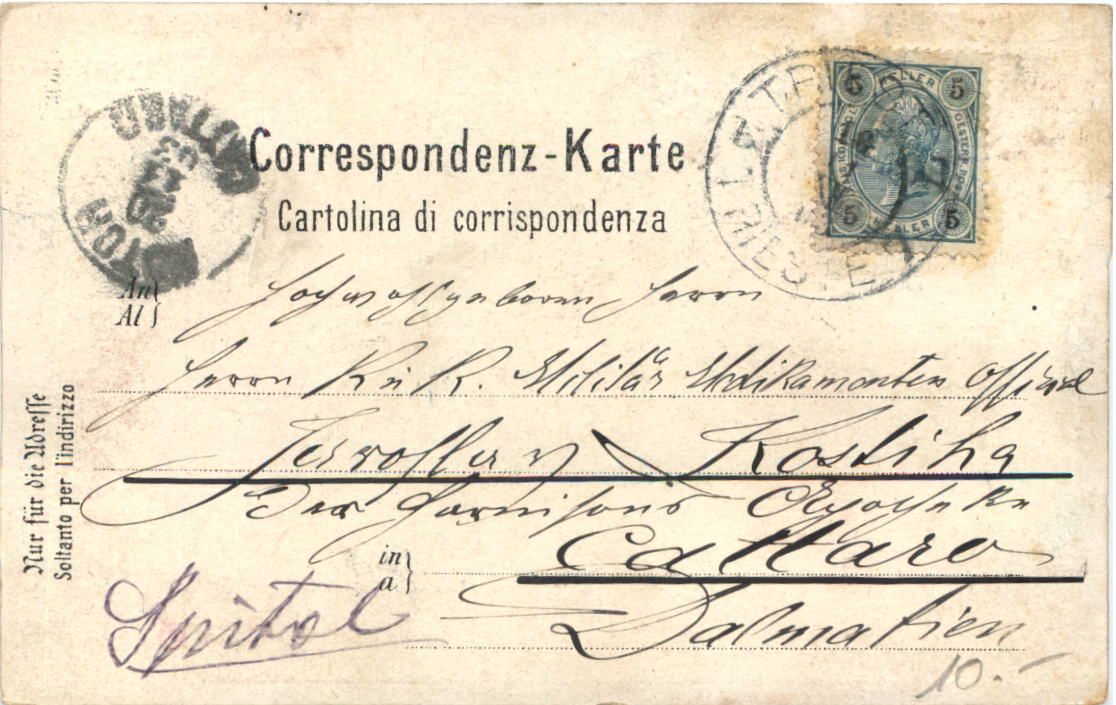 CATTARO
20 12 03
Correspondenz-Karte
Cartolina di corrispondenza
TRIESTE
5 HELLER 5
5 HELLER 5
An
Al
Hochwohlgeboren Herrn
Herrn K u K. Militär Medikamenten Official
Jaroslav Kostiha
Der Garnisons Apotheke
in
a
Cattaro
Dalmatien
Spital
Nur für die Adresse
Soltanto per l'indirizzo
10.-